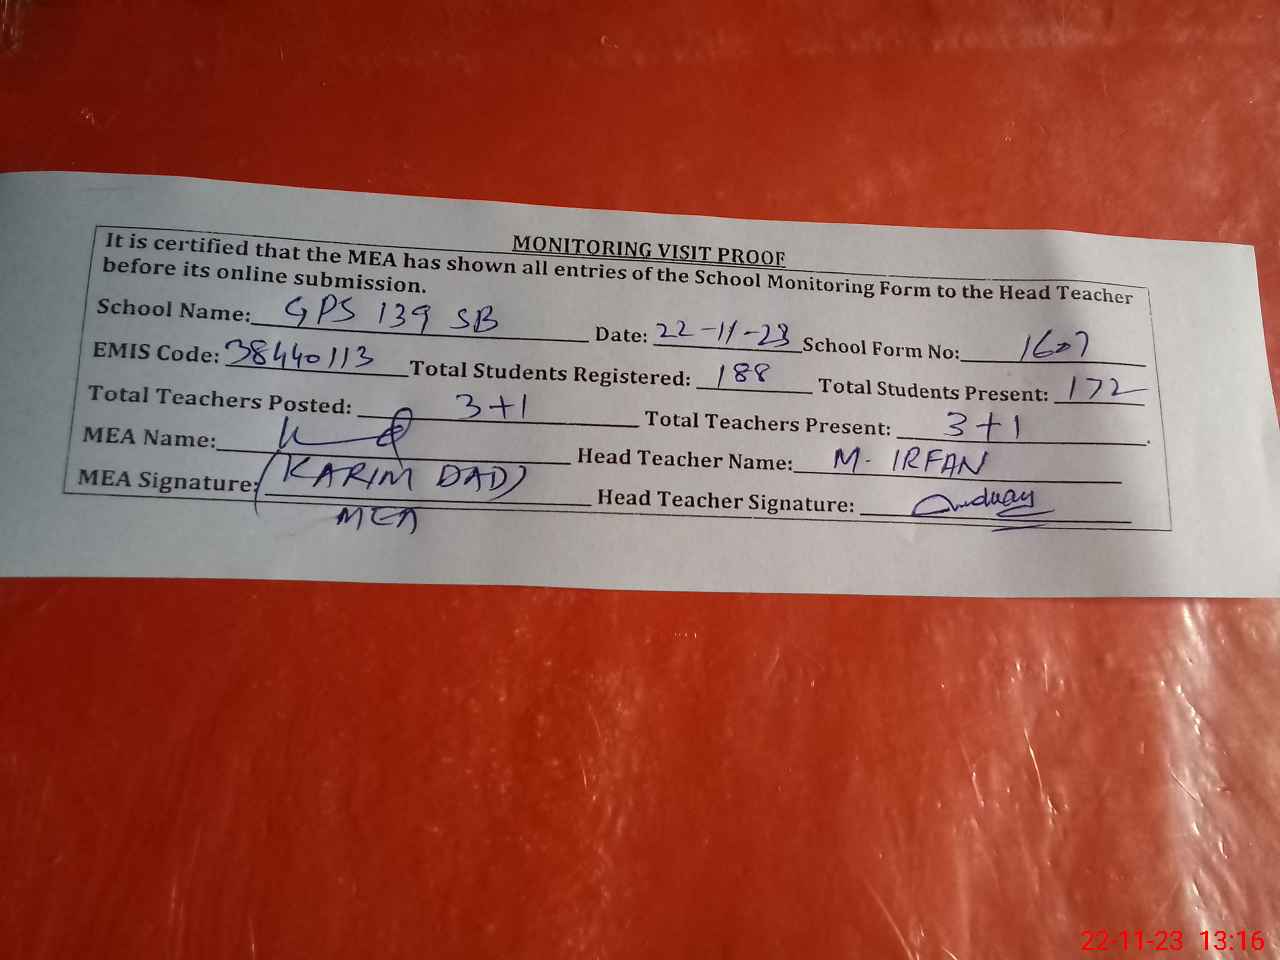 MONITORING VISIT PROOF
It is certified that the MEA has shown all entries of the School Monitoring Form to the Head Teacher
before its online submission.
School Name: GPS 139 SB Date: 22-11-23 School Form No: 1607
EMIS Code: 38440113 Total Students Registered: 188 Total Students Present: 172
Total Teachers Posted: 3+1 Total Teachers Present: 3+1
MEA Name: Head Teacher Name: M. IRFAN
MEA Signature: (KARIM DAD) Head Teacher Signature:
MEA
22-11-23 13:16